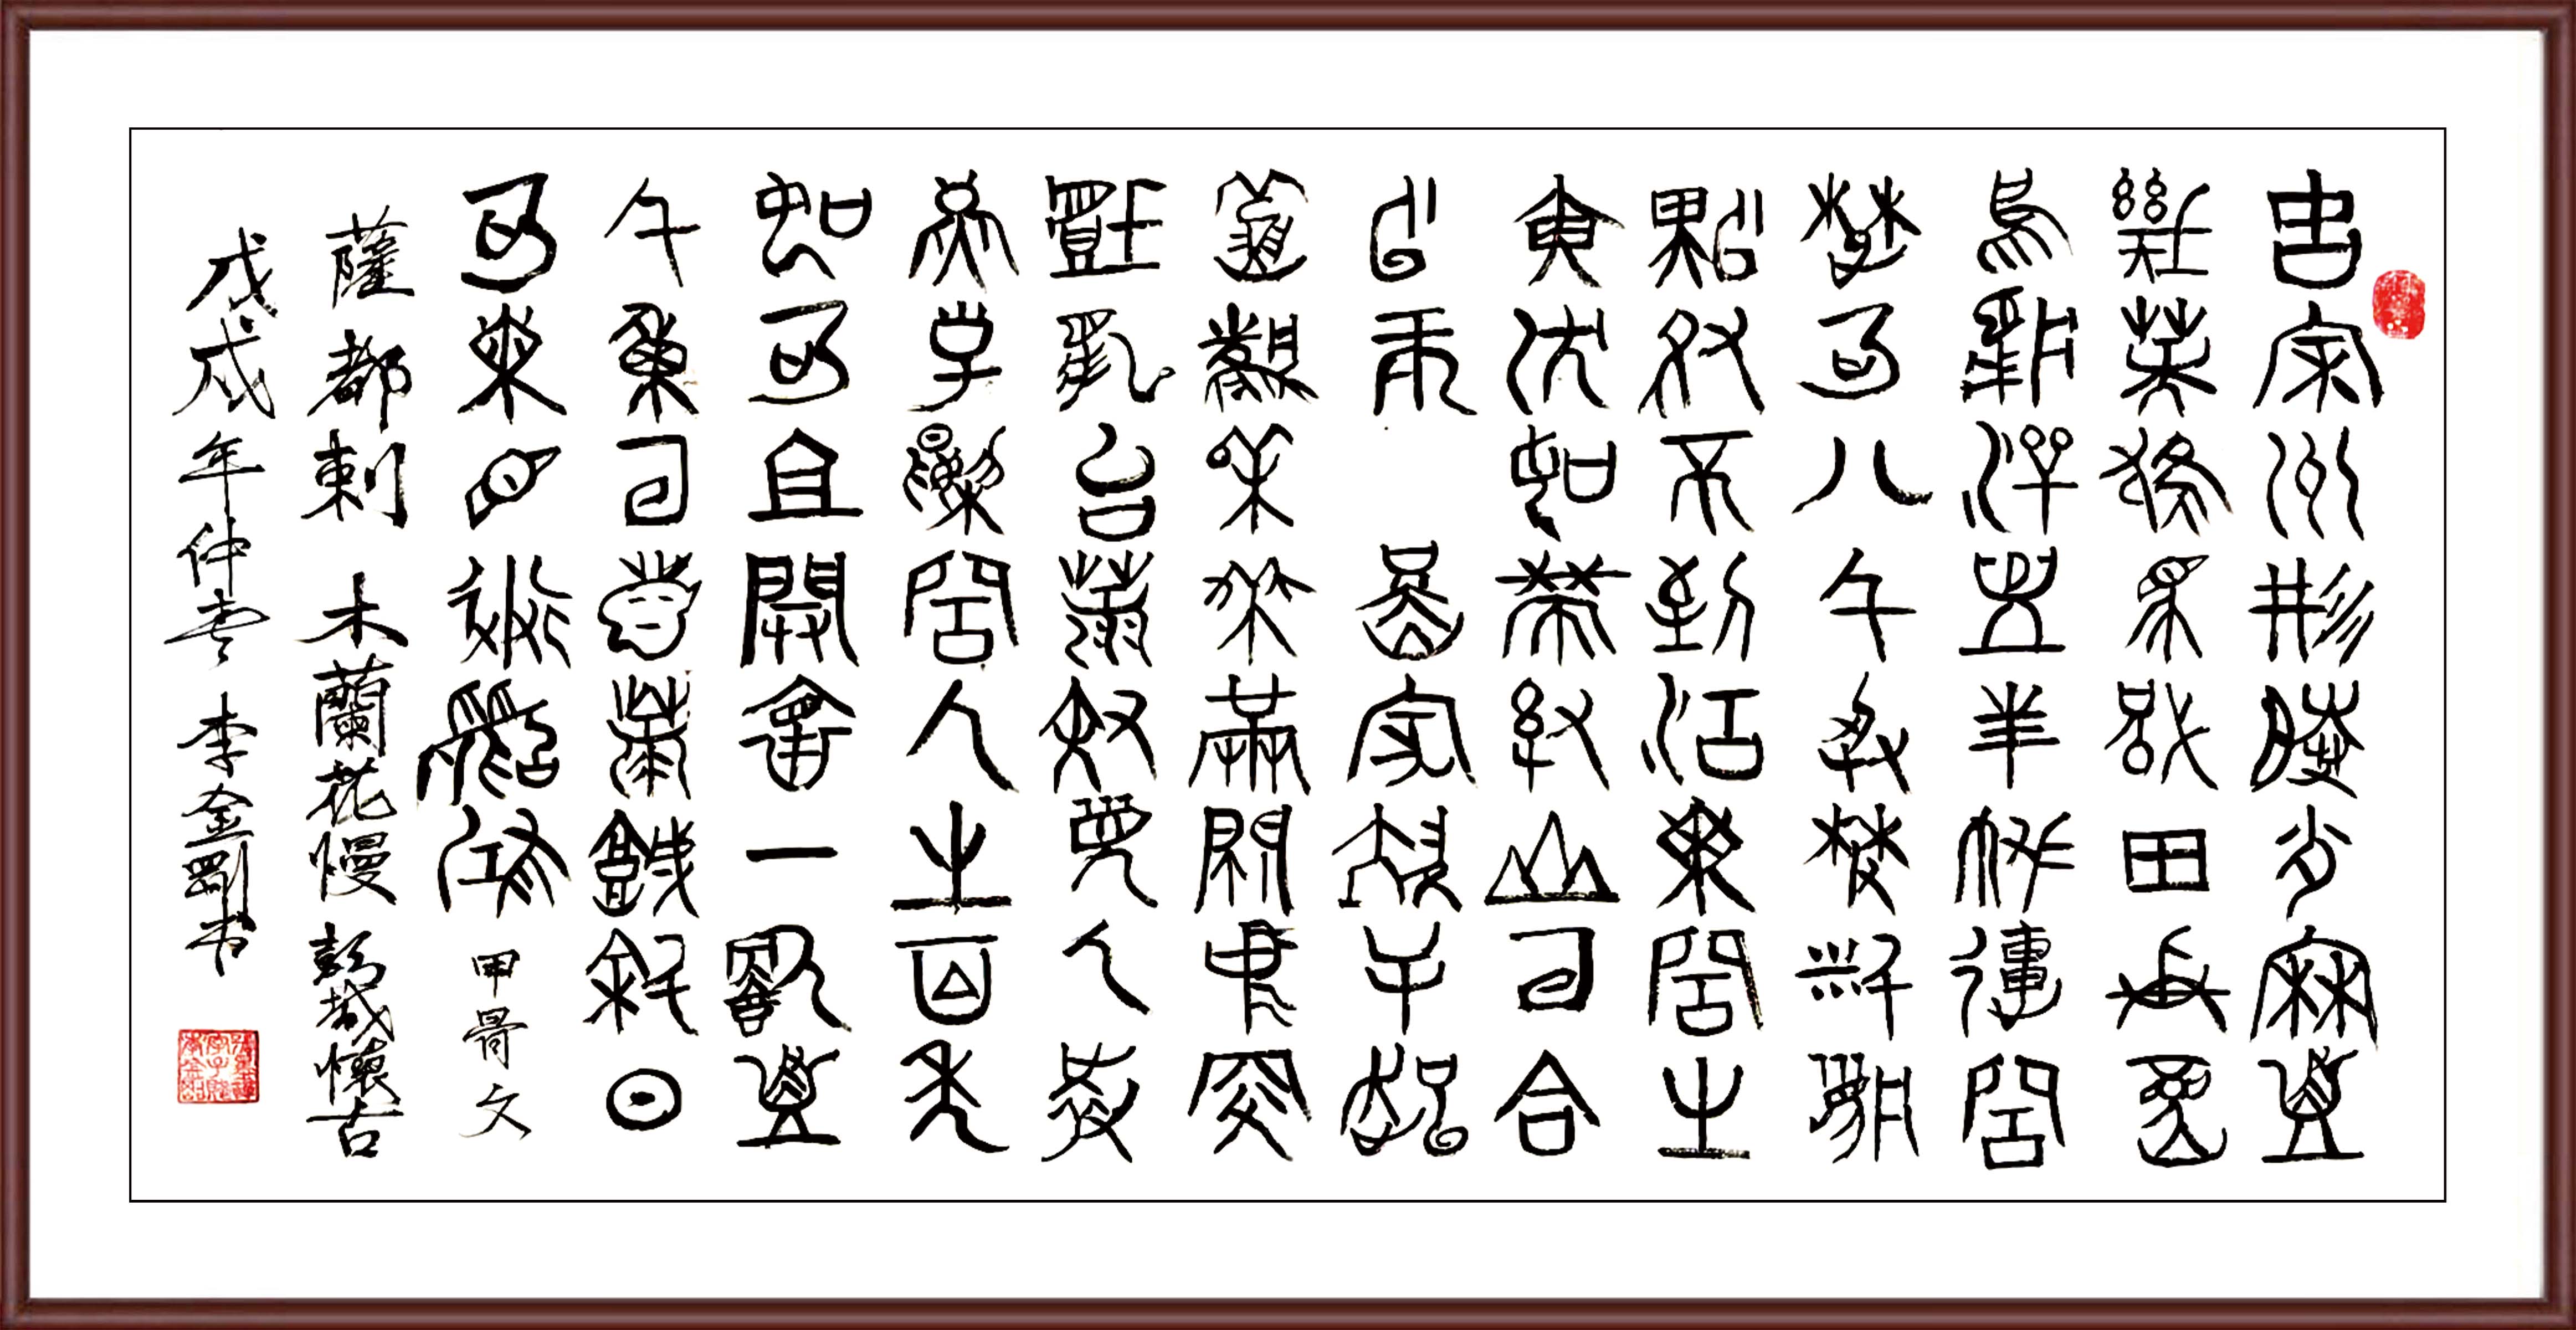 古徐州形勝消磨盡
幾英雄想鐵甲重瞳
烏騅汗血玉帳連空
楚歌八千兵散料夢
魂應不到江東空有
黃河如帶亂山回合
雲龍 漢家陵闕起
秋風禾黍滿關中更
戲馬台荒畫眉人遠
燕子樓空人生百年
如寄且開懷一飲盡
千鍾回首荒城斜日
倚欄目送飛鴻 甲骨文
薩都剌 木蘭花慢 彭城懷古
戊戌年仲 李金剛书